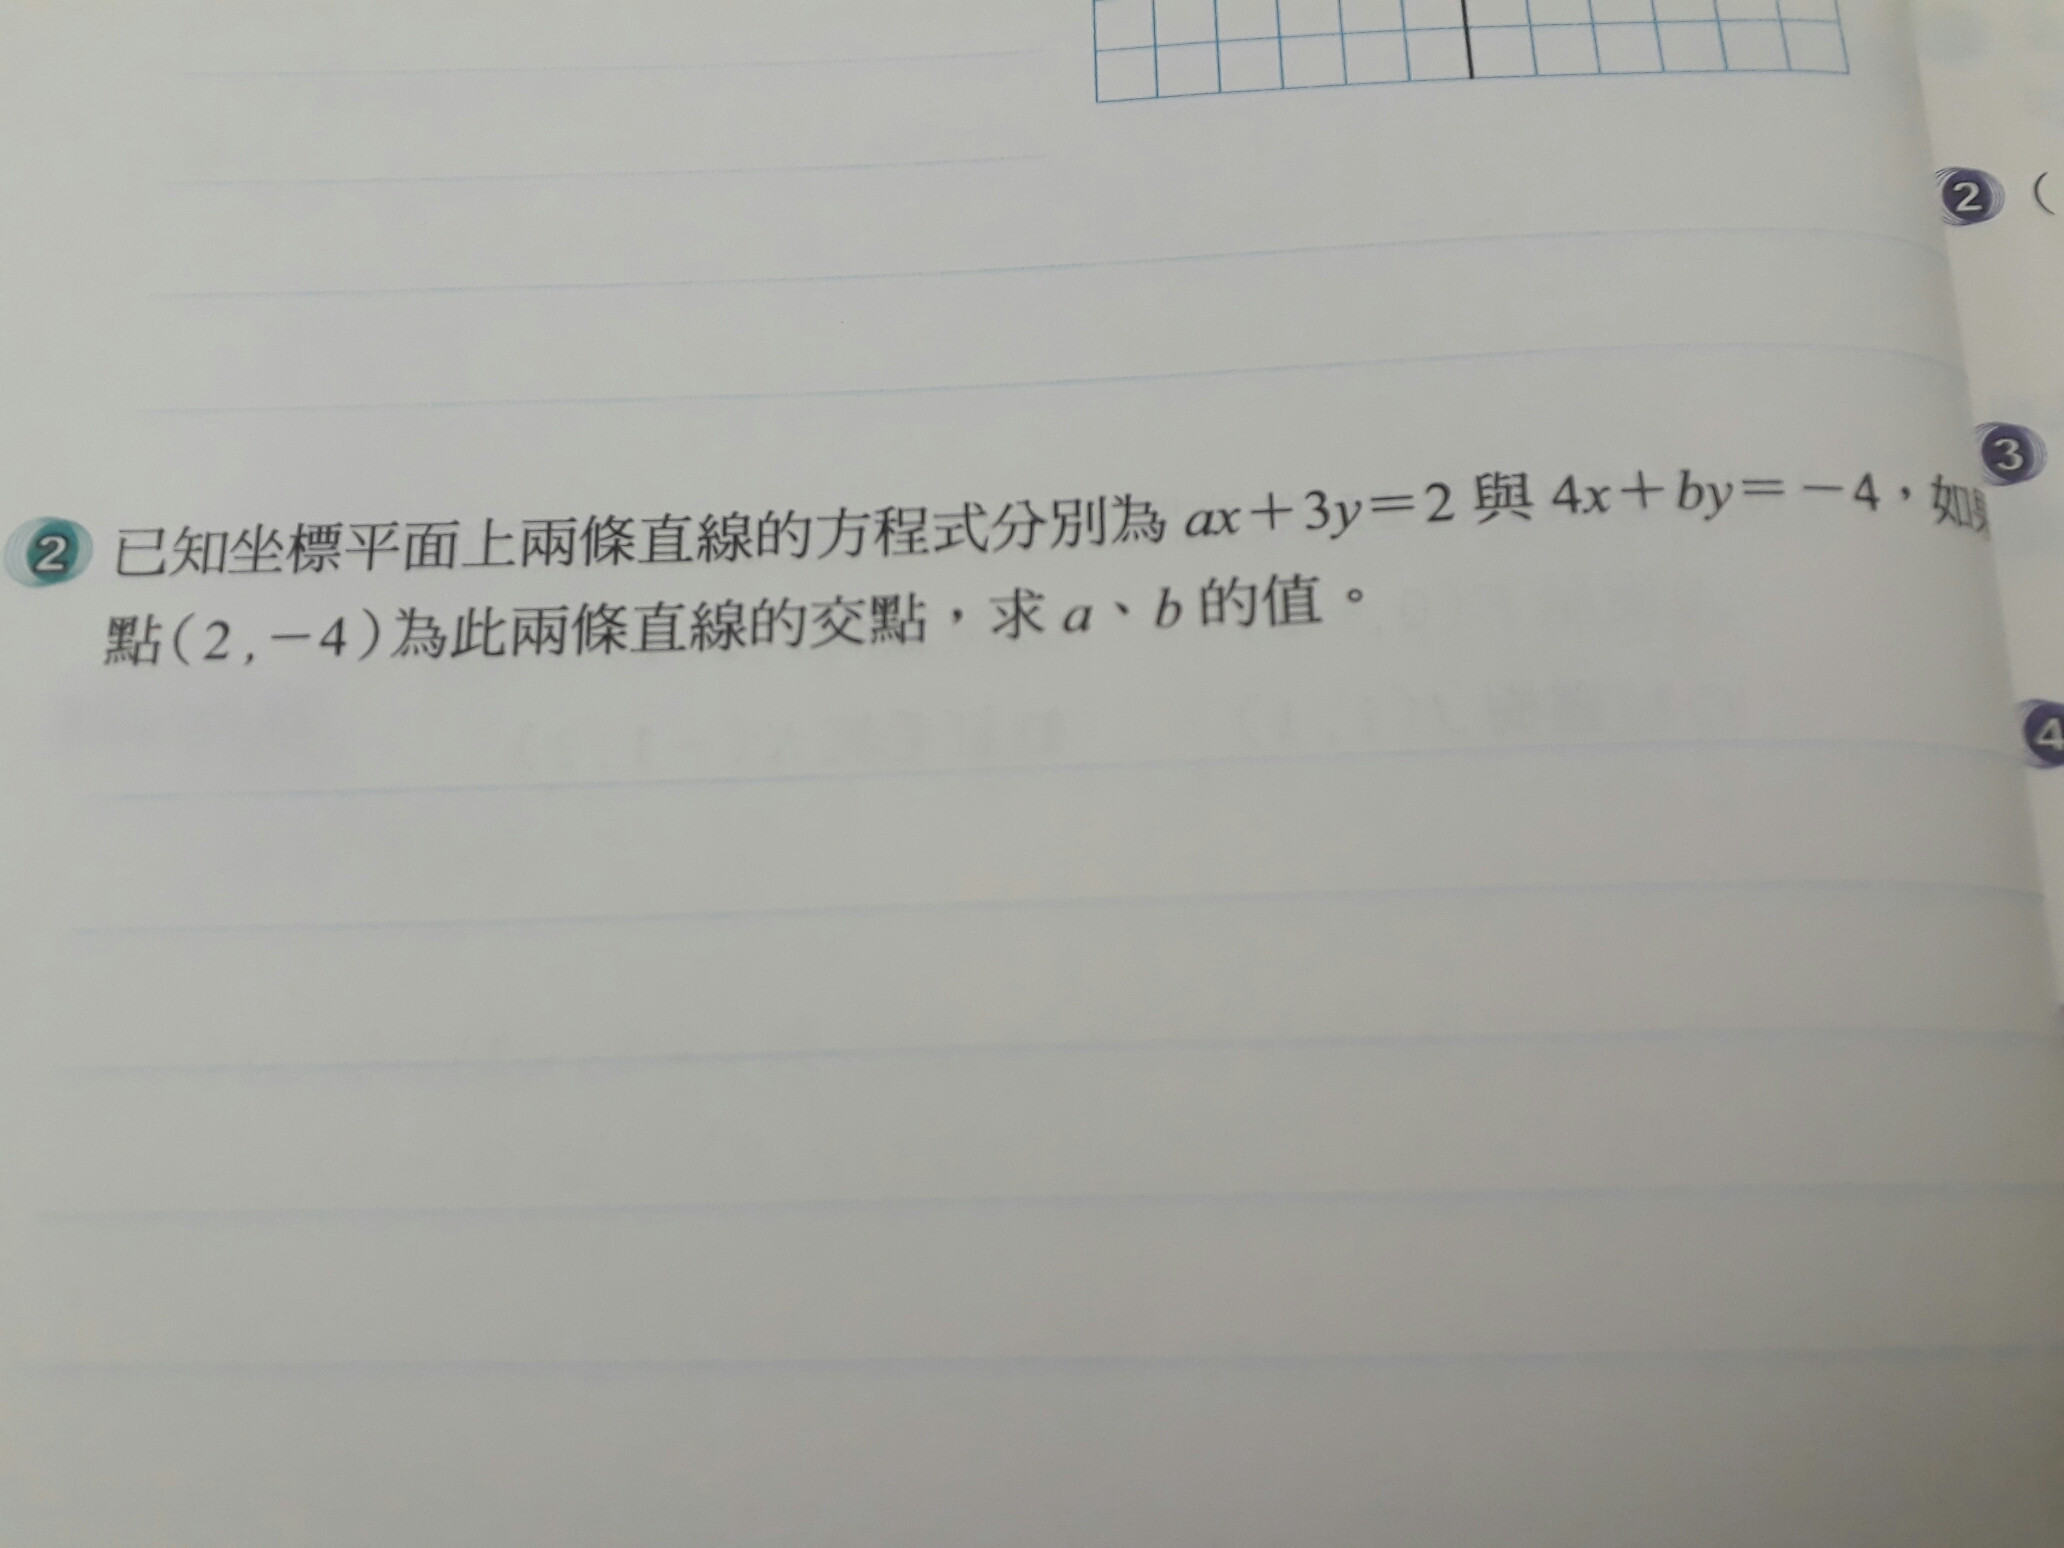 2 (
3
2 已知坐標平面上兩條直線的方程式分別為 ax+3y=2 與 4x+by=-4,如果
點(2,-4)為此兩條直線的交點,求 a、b 的值。
4